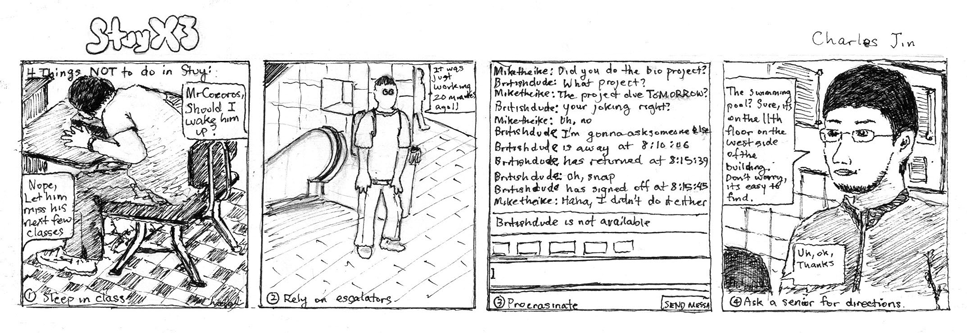 StuyX3
Charles Jin
4 Things NOT to do in Stuy:
Mr Cocoros,
Should I
wake him
up?
Nope,
Let him
miss his
next few
classes
① Sleep in class
It was
just
working
20 minutes
ago!!
② Rely on escalators
Miketheike: Did you do the bio project?
Britishdude: What project?
Miketheike: The project due TOMORROW?
Britishdude: your joking right?
Miketheike: Uh, no
Britishdude: I'm gonna ask someone else
Britishdude is away at 8:10:06
Britishdude has returned at 8:15:39
Britishdude: Oh, snap
Britishdude has signed off at 8:15:45
Miketheike: Haha, I didn't do it either
Britishdude is not available
SEND MESSA
③ Procrasinate
The swimming
pool? Sure, its
on the 11th
floor on the
west side
of the
building.
Don't worry,
its easy to
find.
Uh, ok,
Thanks
④ Ask a senior for directions.